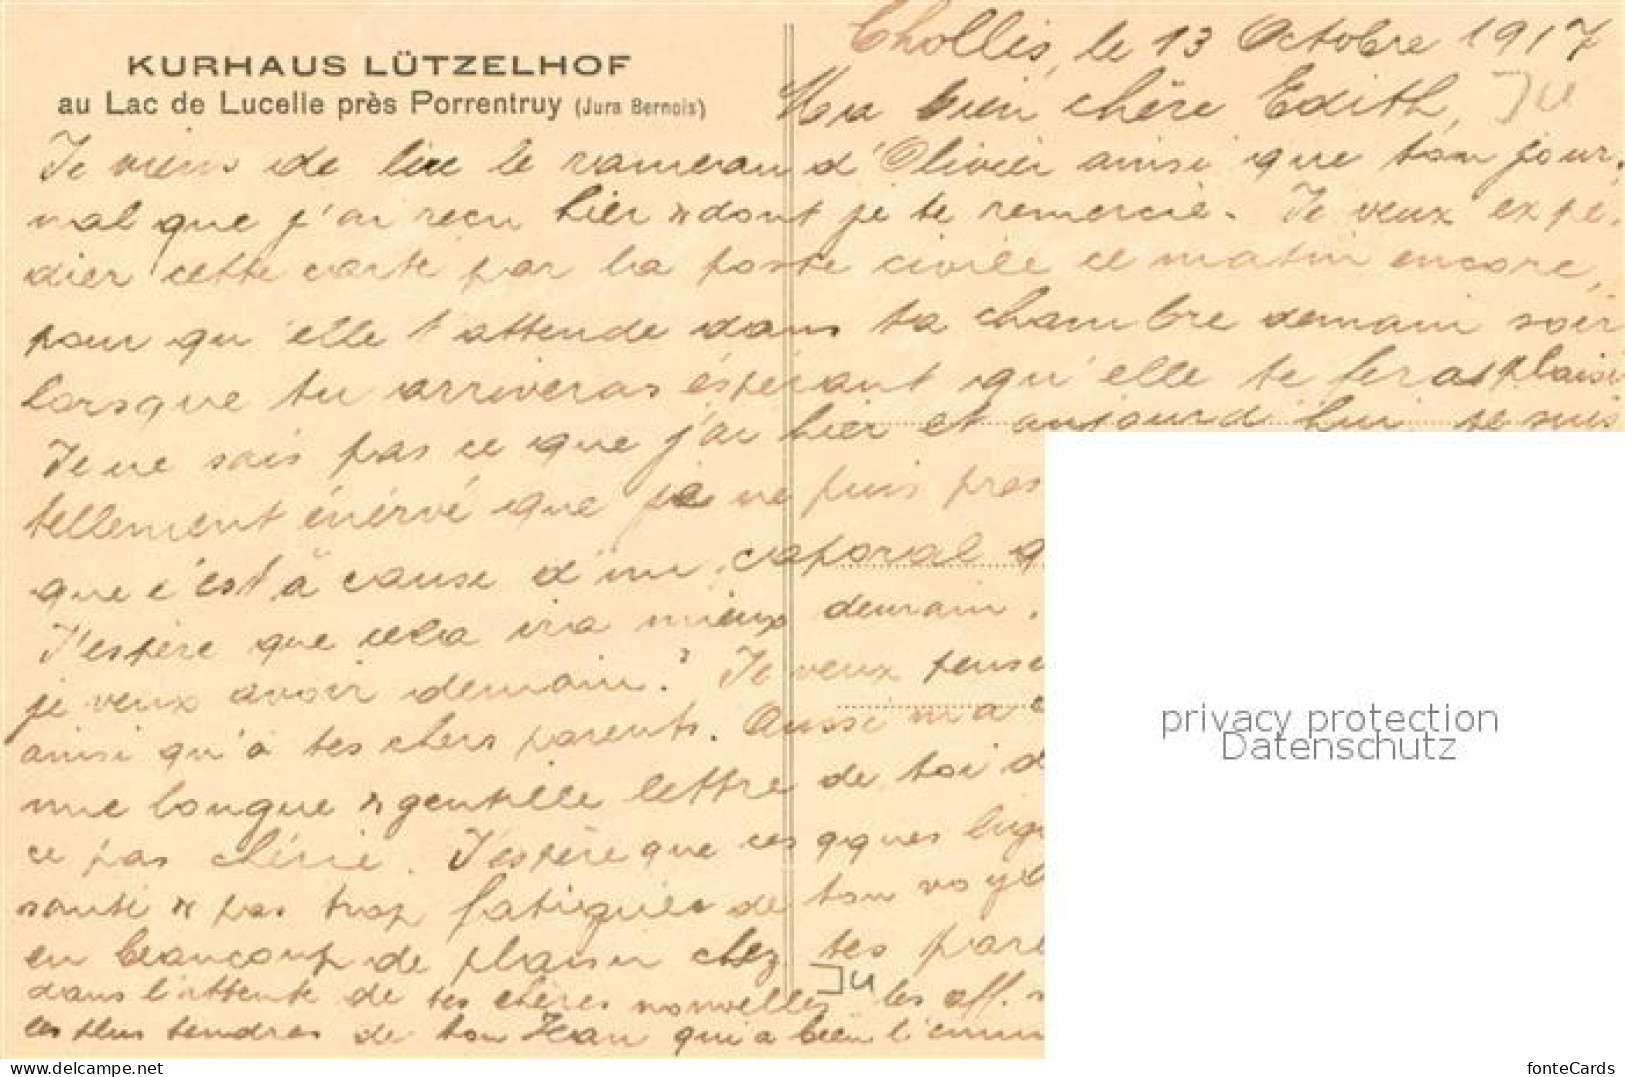 KURHAUS LÜTZELHOF
au Lac de Lucelle près Porrentruy (Jura Bernois)
Chollis, le 13 Octobre 1917
Ma bien chère Edith,
Je viens de lire le rameau d'Olivier ainsi que ton jour-
nal que j'ai reçu hier & dont je te remercie. Je veux expé-
dier cette carte par la poste civile ce matin encore,
pour qu'elle t'attende dans ta chambre demain soir
lorsque tu arriveras éspérant qu'elle te feras plaisi
Je ne sais pas ce que j'ai hier et aujourd'hui je suis
tellement énérvé que je ne puis pres
que c'est à cause d'un caporal q
J'espère que cela ira mieux demain.
je veux avoir demain? Je veux pense
ainsi qu'à tes chers parents. Aussi m'a
une longue & gentille lettre de toi d
ce pas chérie. J'espère que ces qques lig
santé & pas trop fatiguée de ton voy
en beaucoup de plaisir chez tes pare
dans l'attente de tes chères nouvelles les aff.
les plus tendres de ton Jean qui a bien l'ennu
JU
JU
privacy protection
Datenschutz
www.delcampe.net
fonteCards